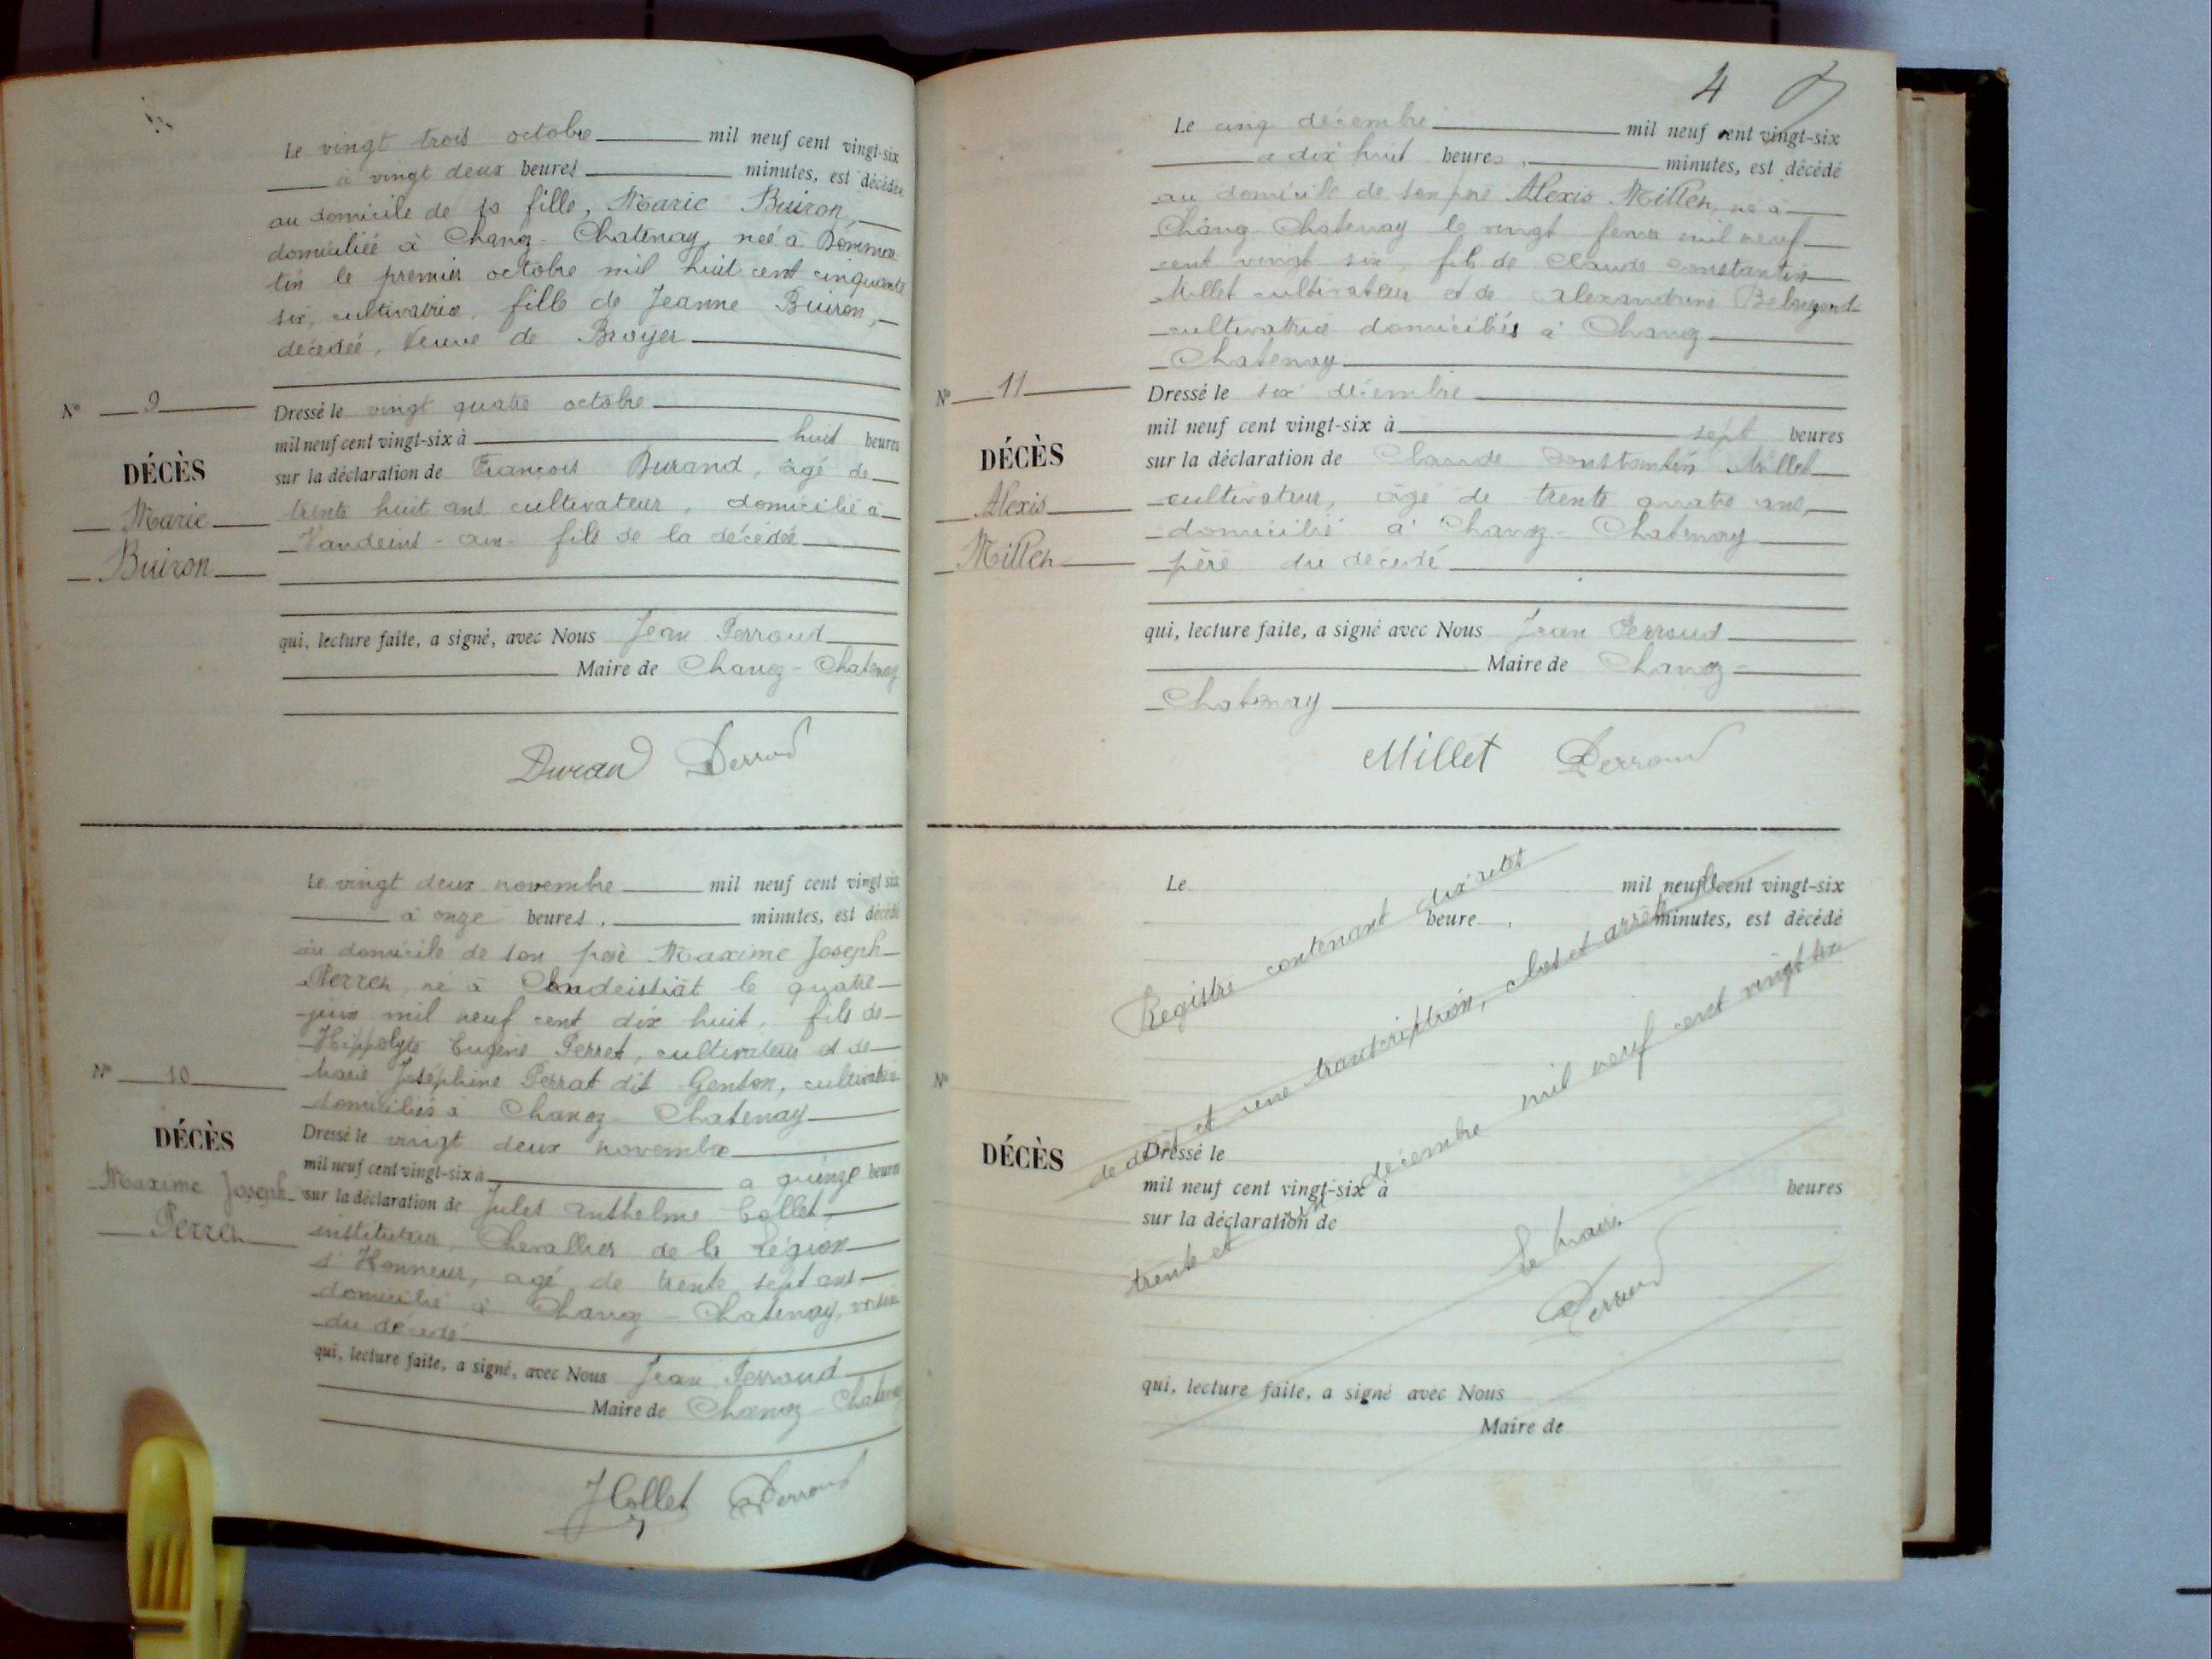 Le vingt trois octobre mil neuf cent vingt-six
à vingt deux heures minutes, est décédée
au domicile de sa fille, Marie Buiron,
domiciliée à Chanoz-Chatenay, née à Dommar-
tin le premier octobre mil huit cent cinquante
six, cultivatrice, fille de Jeanne Buiron,
décédée, Veuve de Broyer
N° 9
Dressé le vingt quatre octobre
mil neuf cent vingt-six à huit heures
DÉCÈS
sur la déclaration de François Durand, âgé de
Marie
trente huit ans, cultivateur, domicilié à
Buiron
Vandeins - Ain - fils de la décédée
qui, lecture faite, a signé, avec Nous Jean Perroud
Maire de Chanoz-Chatenay
Duran Perroud
Le vingt deux novembre mil neuf cent vingt six
à onze heures, minutes, est décédé
au domicile de son père Maxime Joseph
Perret, né à Condeissiat le quatre
juin mil neuf cent dix huit, fils de
Hippolyte Eugène Perret, cultivateur et de
N° 10
Marie Joséphine Perrat dit Genton, cultivatrice
domiciliés à Chanoz Chatenay
DÉCÈS
Dressé le vingt deux novembre
mil neuf cent vingt-six à a quinze heures
Maxime Joseph
Perret
sur la déclaration de Jules Anthelme Collet,
instituteur, Chevallier de la Légion
d'Honneur, agé de trente sept ans
domicilié à Chanoz - Chatenay, voisin
du décédé
qui, lecture faite, a signé, avec Nous Jean Perroud
Maire de Chanoz-Chatenay
JCollet Perroud
4
Le cinq décembre mil neuf cent vingt-six
à dix huit heures, minutes, est décédé
au domicile de son père Alexis Millet, né à
Chanoz Chatenay le vingt mil neuf
cent vingt six, fils de Claude Constantin
Millet cultivateur et de Alexandrine
cultivatrice domiciliés à Chanoz
Chatenay
N° 11
Dressé le six décembre
mil neuf cent vingt-six à sept heures
DÉCÈS
sur la déclaration de Claude Constantin Millet
Alexis
cultivateur, âgé de trente quatre ans,
Millet
domicilié à Chanoz - Chatenay
père du décédé
qui, lecture faite, a signé avec Nous Jean Perroud
Maire de Chanoz-
Chatenay
Millet Perroud
Le mil neuf cent vingt-six
heure, minutes, est décédé
Registre contenant dix actes
de décès et une transcription, clos et arrêté le
trente et un décembre mil neuf cent vingt six
Le Maire
Perroud
N°
DÉCÈS
Dressé le
mil neuf cent vingt-six à heures
sur la déclaration de
qui, lecture faite, a signé avec Nous
Maire de